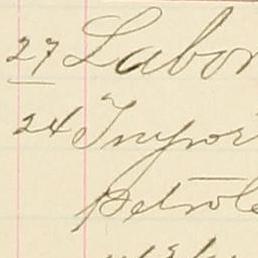 27 Labor
24 Impor
petrole